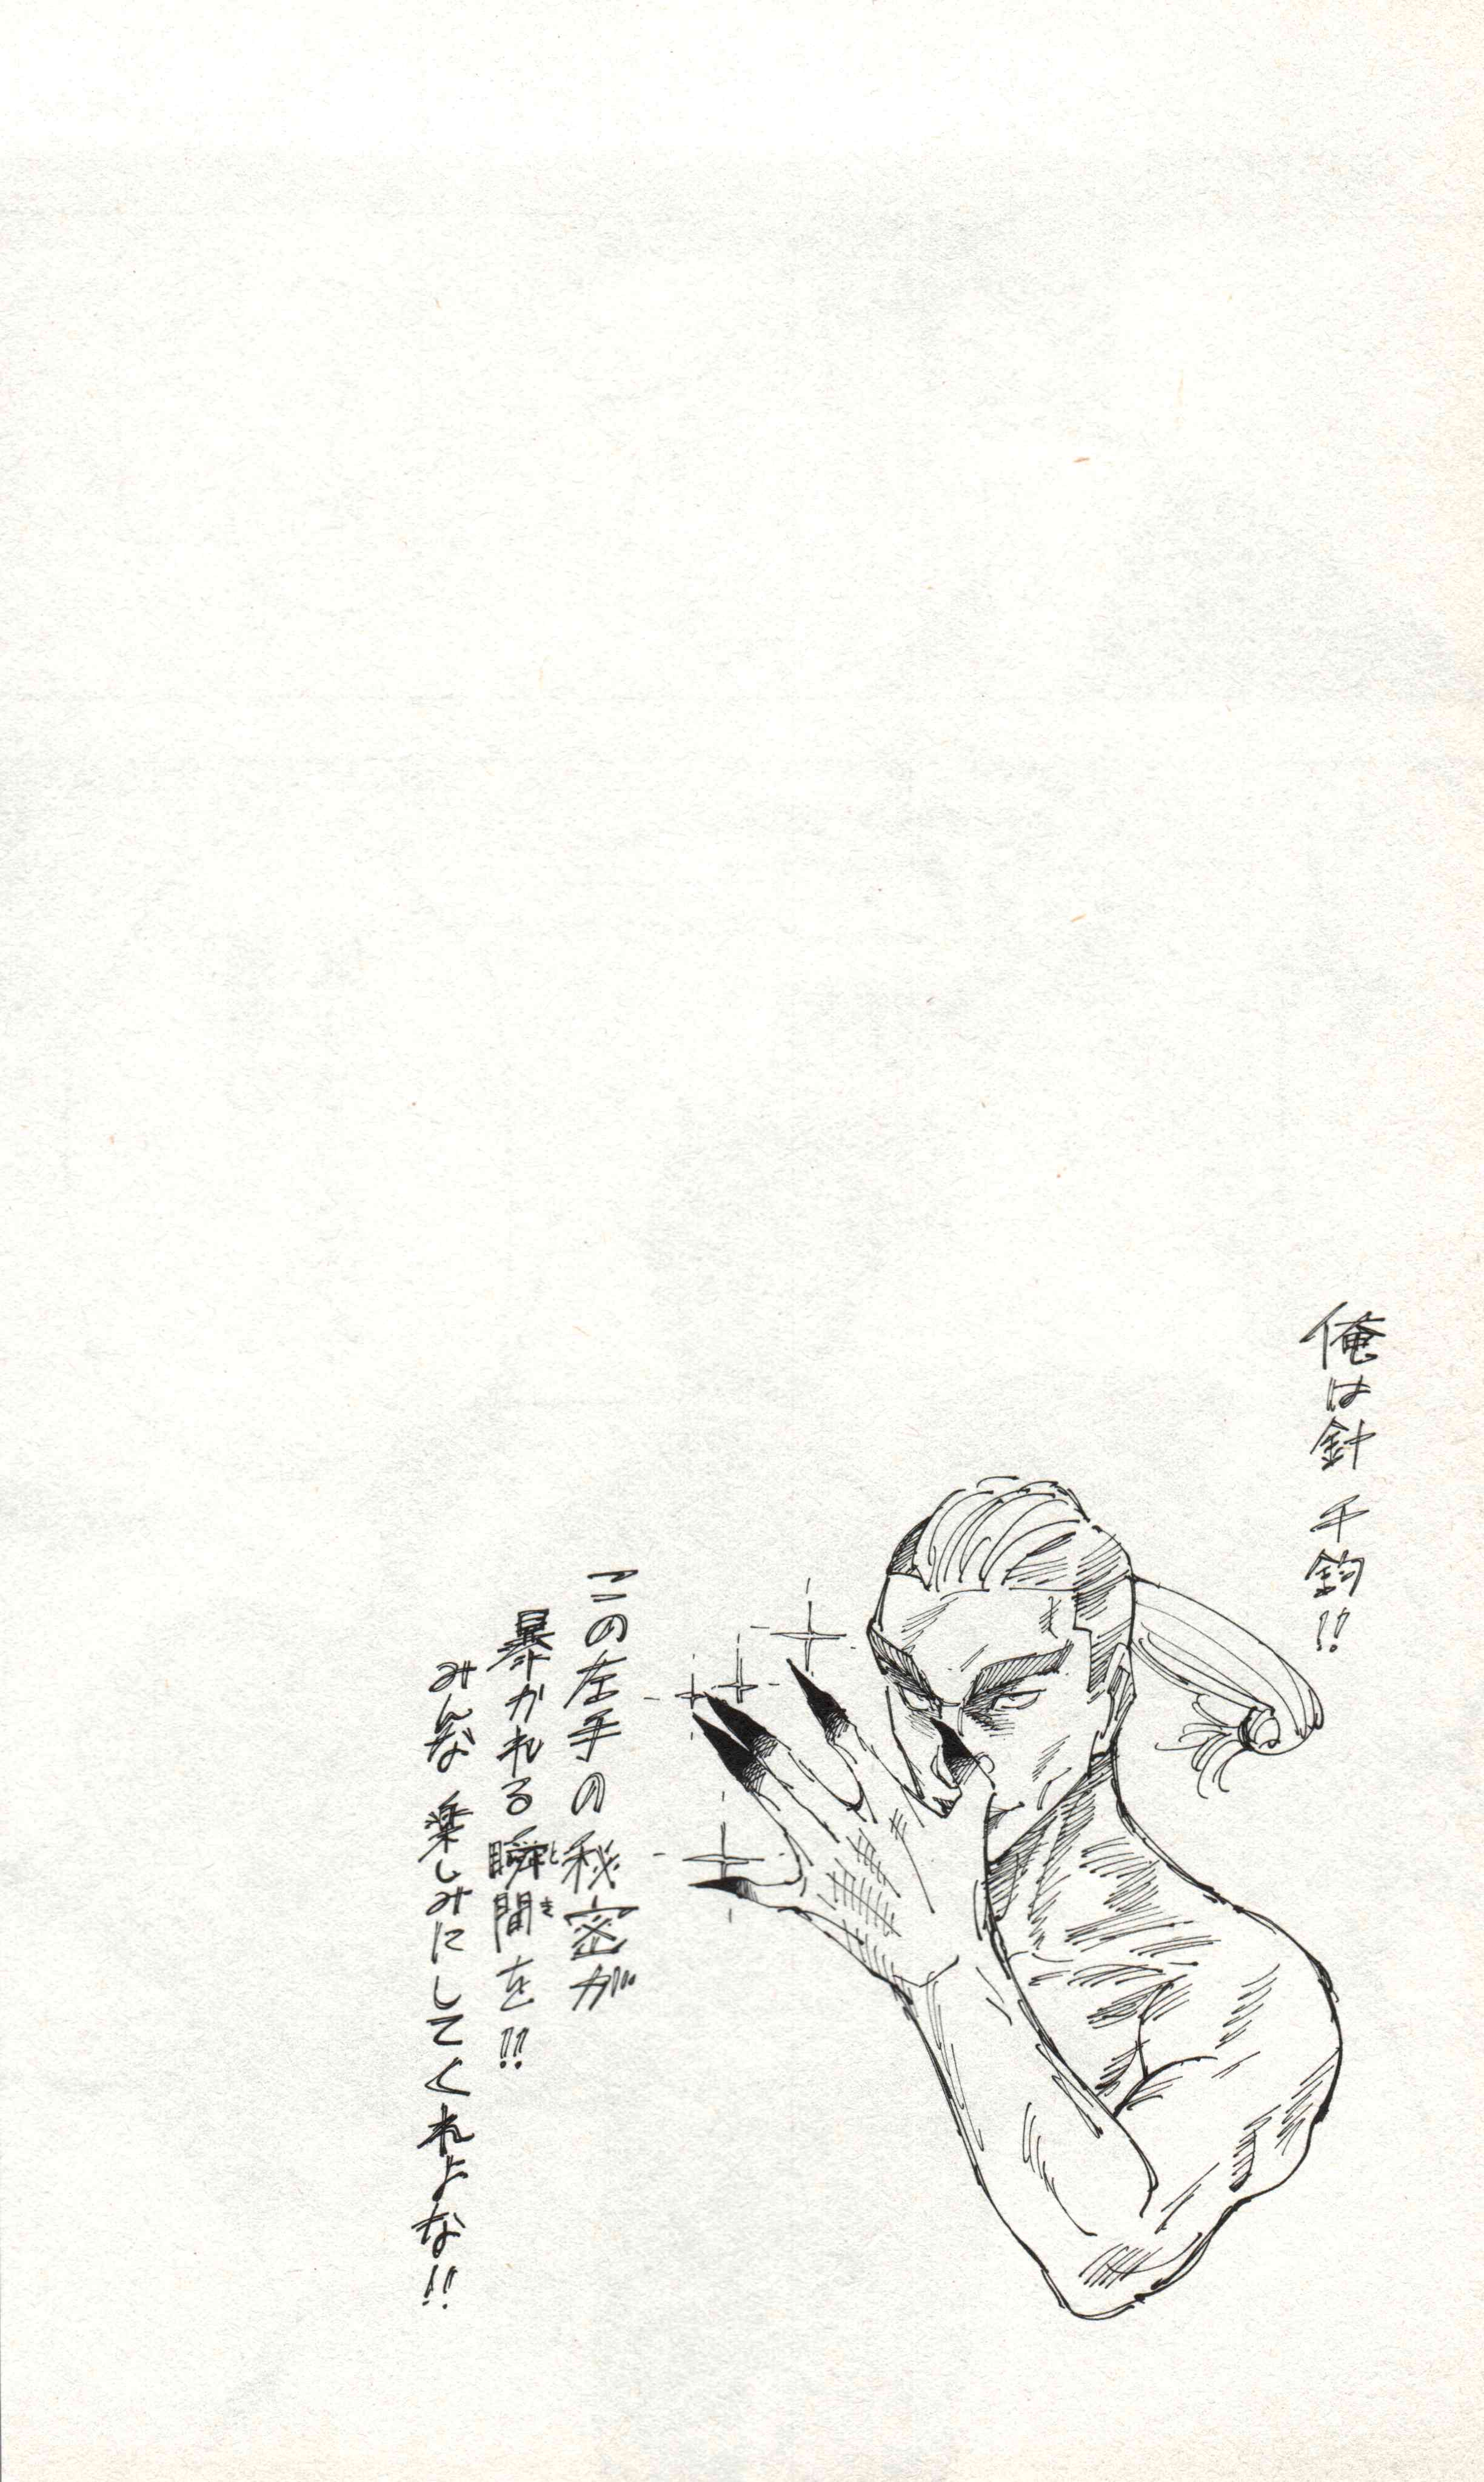 俺は針 千鈞!!
この左手の秘密が
暴かれる瞬間を!!
とき
みんな楽しみにしてくれよな!!